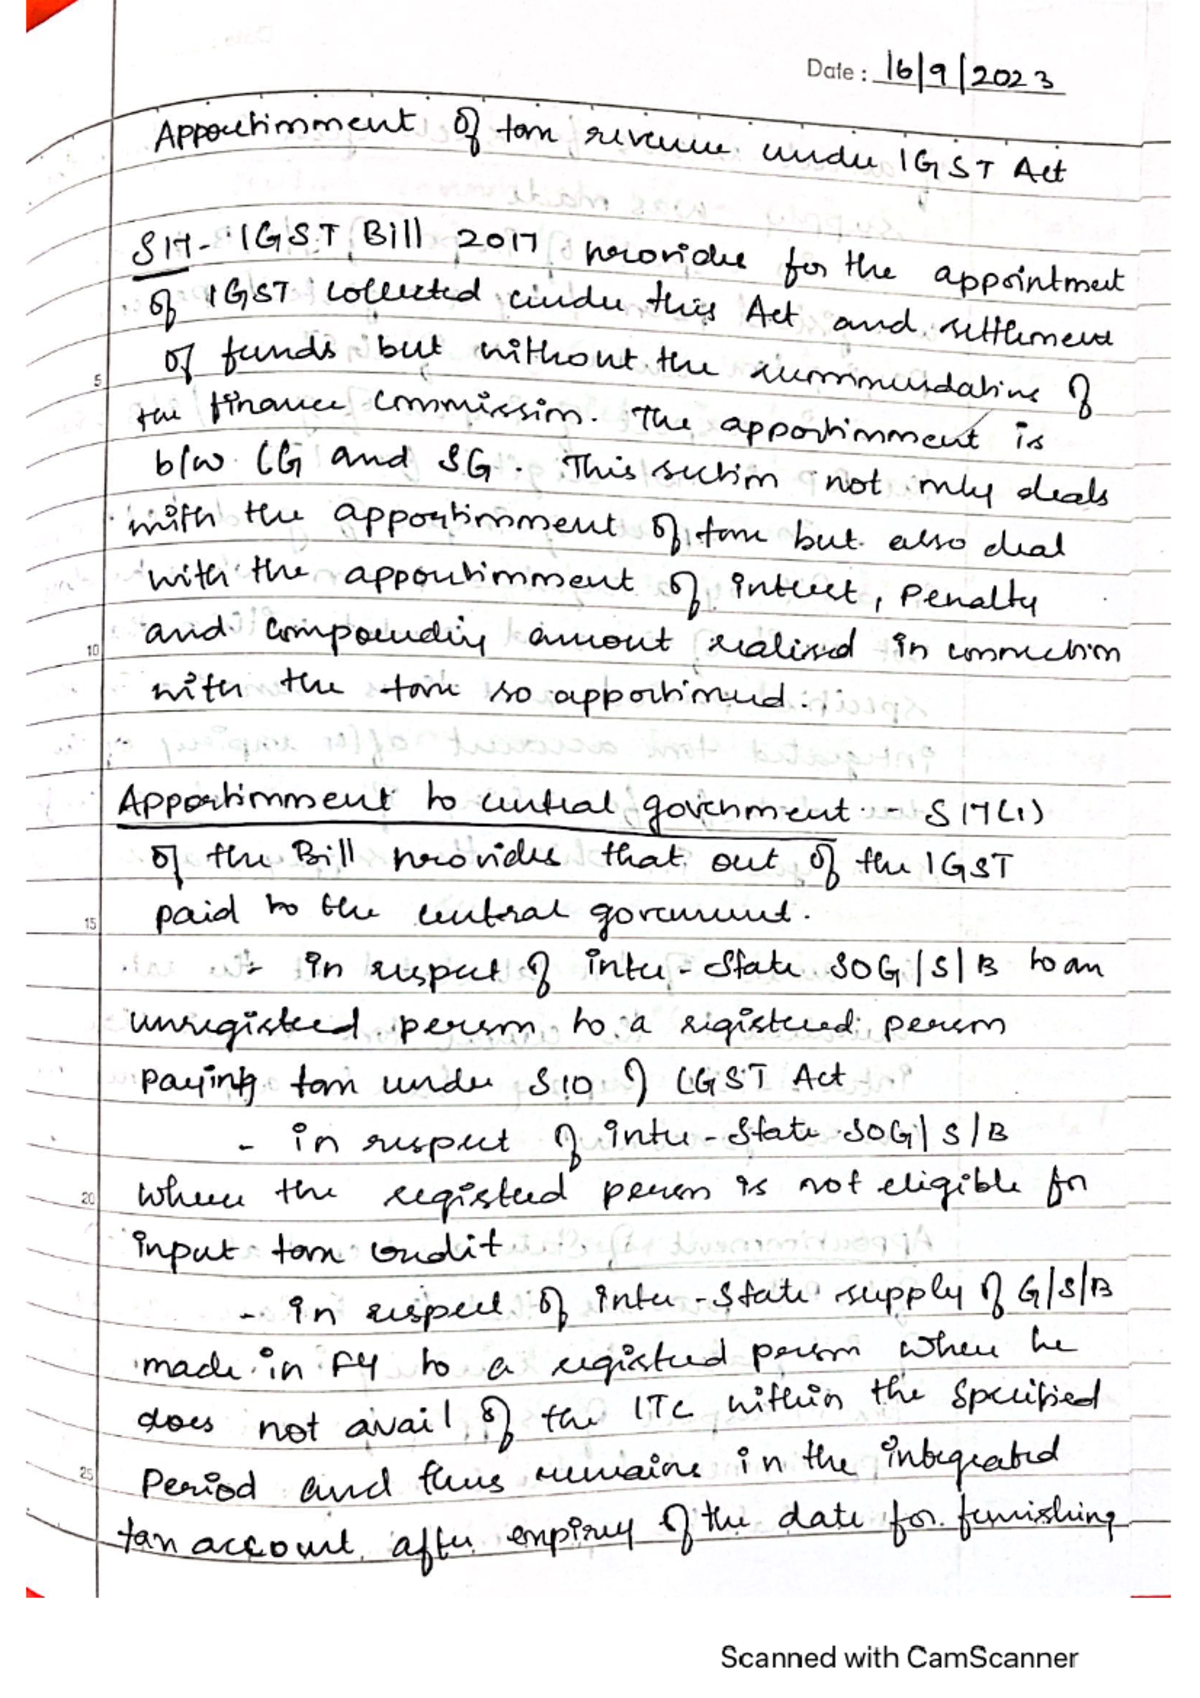 Date: 16/9/2023
Apportionment of tax revenue under IGST Act
S17- IGST Bill 2017 provides for the appointment
of IGST collected under this Act and settlement
of funds but without the recommendation of
5
the finance commission. The apportionment is
b/w CG and SG. This section not only deals
with the apportionment of tax but also deal
with the apportionment of interest, penalty
and compounding amount realised in connection
10
with the tax so apportioned.
Apportionment to central government - S 17(1)
of the Bill provides that out of the IGST
paid to the central government.
15
- in respect of inter-state SOG/S/B to an
unregistered person to a registered person
paying tax under S10 of CGST Act
- in respect of inter-state SOG/S/B
where the registered person is not eligible for
20
input tax credit
- in respect of inter-state supply of G/S/B
made in FY to a registered person where he
does not avail of the ITC within the specified
period and thus remains in the integrated
25
tax account after expiry of the date for furnishing
Scanned with CamScanner